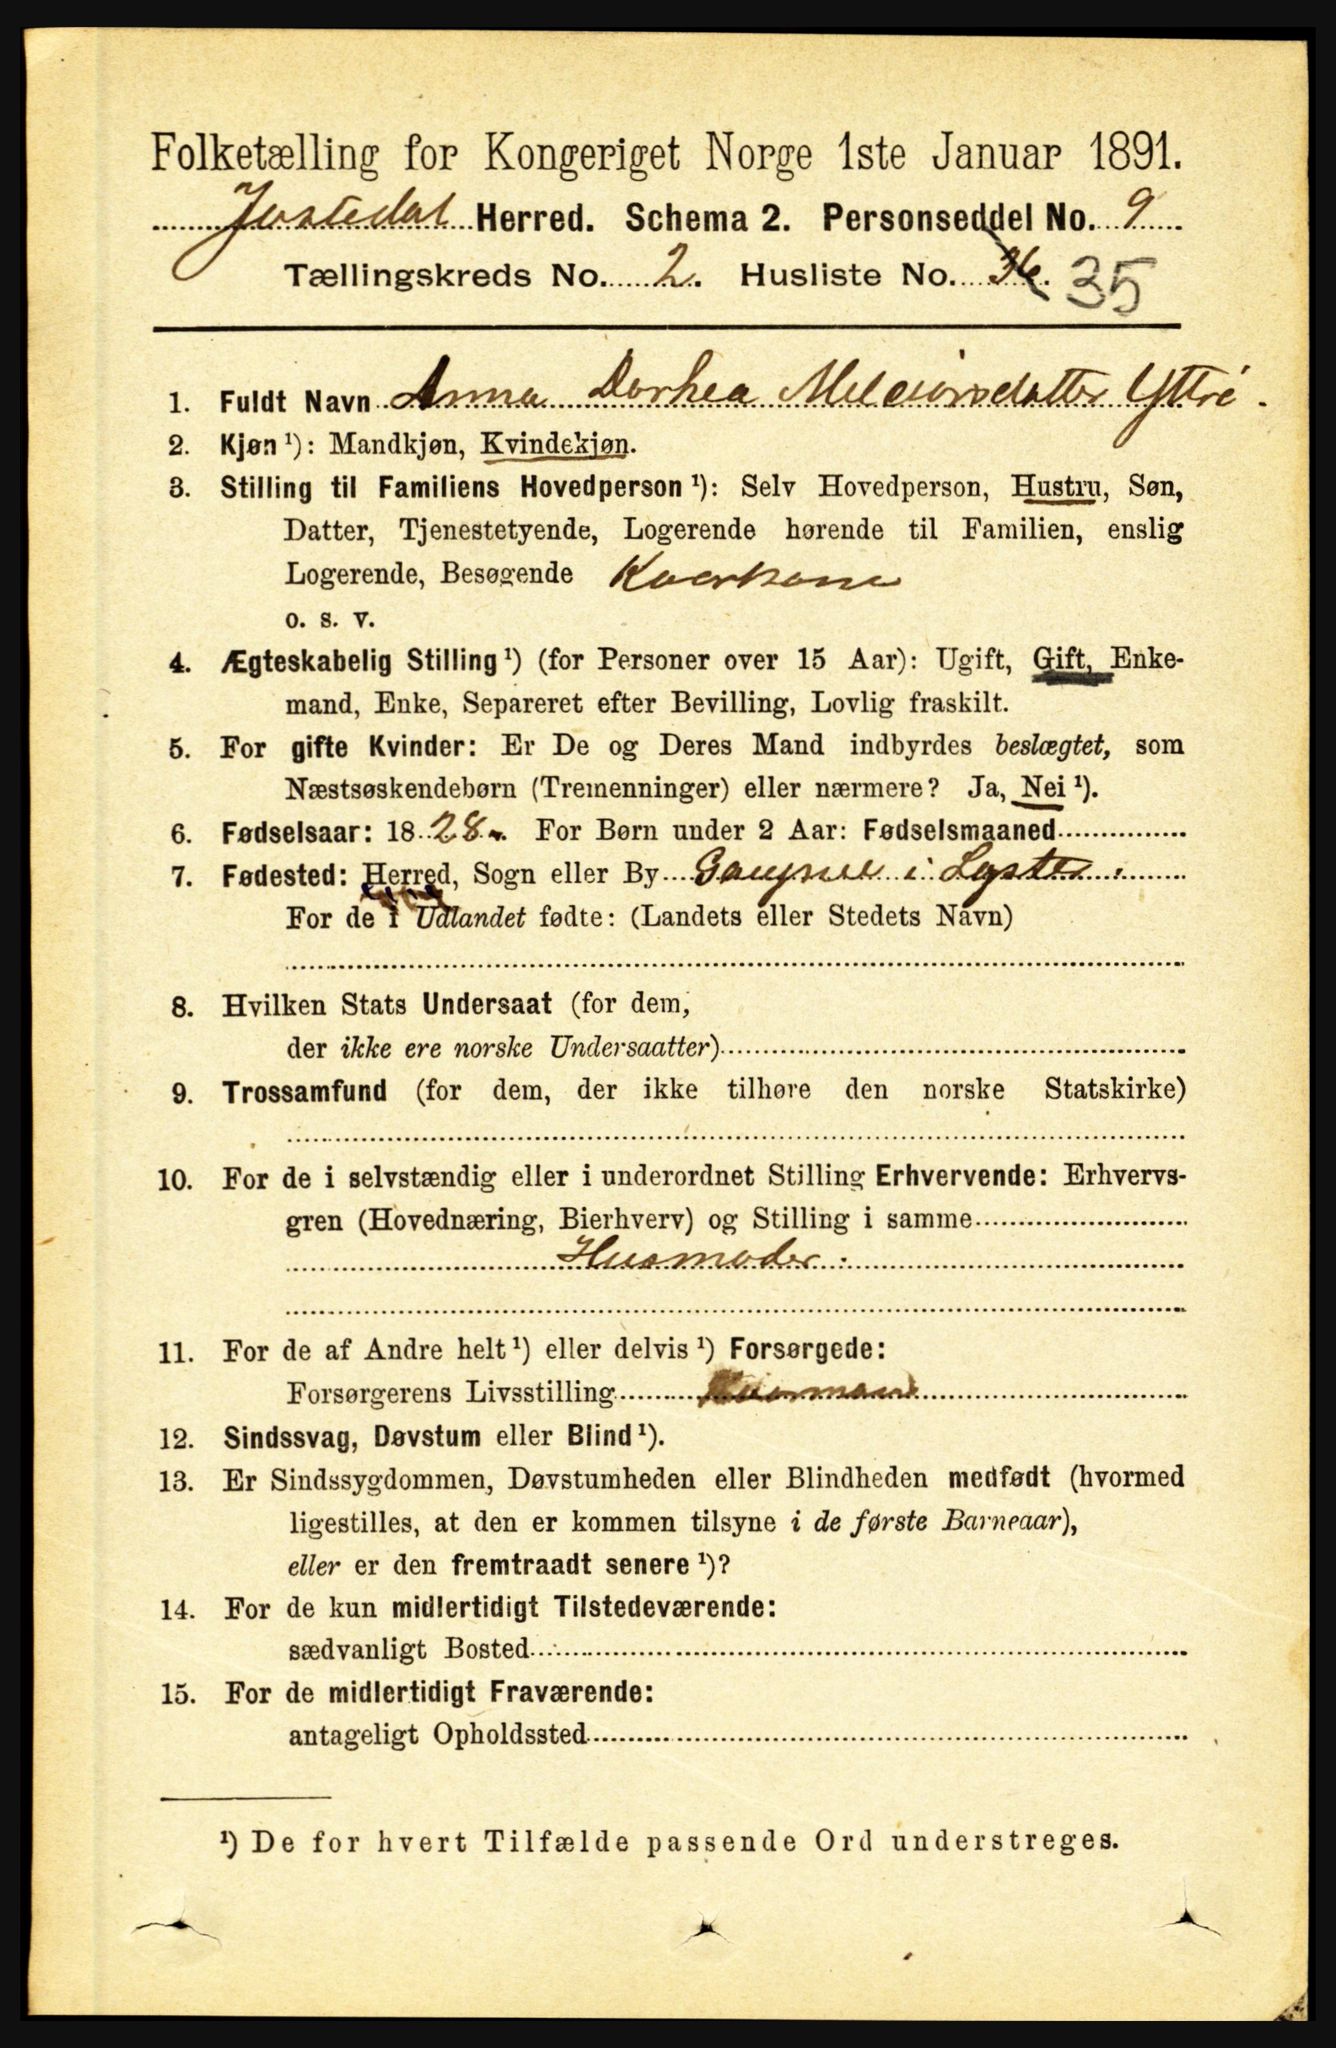 Folketælling for Kongeriget Norge 1ste Januar 1891.
Jostedal Herred. Schema 2. Personseddel No. 9
Tællingskreds No. 2. Husliste No. 36. 35
1. Fuldt Navn Anna Dorhea Melciorsdatter Yttri.
2. Kjøn ¹): Mandkjøn, Kvindekjøn.
3. Stilling til Familiens Hovedperson ¹): Selv Hovedperson, Hustru, Søn,
Datter, Tjenestetyende, Logerende hørende til Familien, enslig
Logerende, Besøgende Kaarkone
o. s. v.
4. Ægteskabelig Stilling ¹) (for Personer over 15 Aar): Ugift, Gift, Enke-
mand, Enke, Separeret efter Bevilling, Lovlig fraskilt.
5. For gifte Kvinder: Er De og Deres Mand indbyrdes beslægtet, som
Næstsøskendebørn (Tremenninger) eller nærmere? Ja, Nei ¹).
6. Fødselsaar: 1828. For Børn under 2 Aar: Fødselsmaaned
7. Fødested: Herred, Sogn eller By Gaupne i Lyster.
For de i Udlandet fødte: (Landets eller Stedets Navn)
8. Hvilken Stats Undersaat (for dem,
der ikke ere norske Undersaatter)
9. Trossamfund (for dem, der ikke tilhøre den norske Statskirke)
10. For de i selvstændig eller i underordnet Stilling Erhvervende: Erhvervs-
gren (Hovednæring, Bierhverv) og Stilling i samme
Husmoder.
11. For de af Andre helt ¹) eller delvis ¹) Forsørgede:
Forsørgerens Livsstilling Kaarmand
12. Sindssvag, Døvstum eller Blind ¹).
13. Er Sindssygdommen, Døvstumheden eller Blindheden medfødt (hvormed
ligestilles, at den er kommen tilsyne i de første Barneaar),
eller er den fremtraadt senere ¹)?
14. For de kun midlertidigt Tilstedeværende:
sædvanligt Bosted
15. For de midlertidigt Fraværende:
antageligt Opholdssted
¹) De for hvert Tilfælde passende Ord understreges.